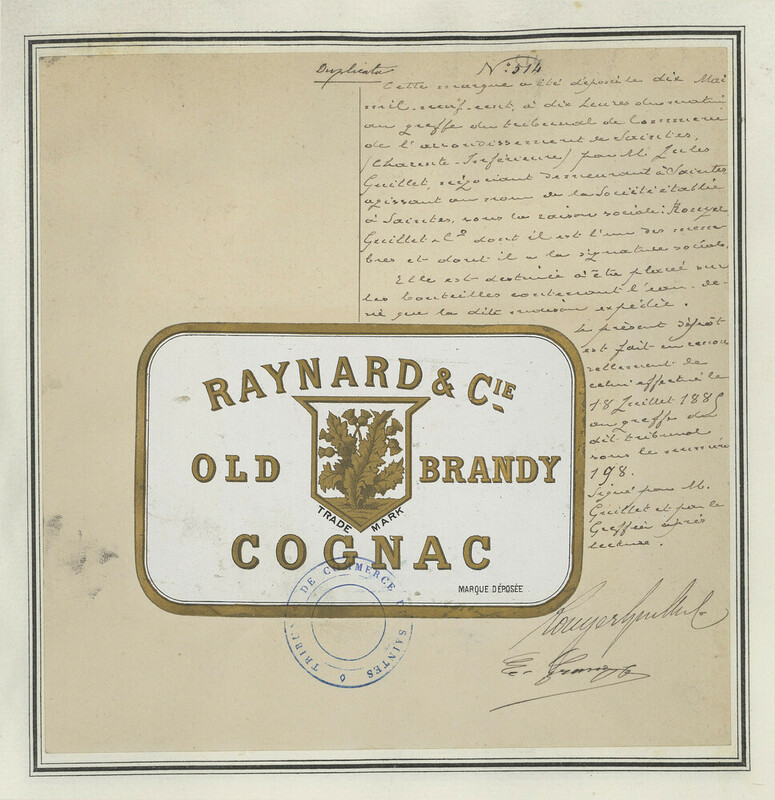 Duplicata
N° 514
Cette marque a été déposée le dix Mai
mil-neuf-cent, à dix heures du matin
au greffe du tribunal de Commerce
de l'arrondissement de Saintes,
(Charente-Inférieure) par M. Jules
Guillet, négociant demeurant à Saintes
agissant au nom de la Société établie
à Saintes, sous la raison sociale: Rouyer
Guillet & Cie dont il est l'un des mem
bres et dont il a la signature sociale.
Elle est destinée à être placée sur
les bouteilles contenant l'eau-de-
vie que la dite maison expédie.
Le présent dépôt
est fait en renou
vellement de
celui effectué le
18 Juillet 1885
au greffe du
dit tribunal
sous le numéro
198.
Signé par M.
Guillet et par le
Greffier après
lecture.
RAYNARD & CIE
OLD BRANDY
TRADE MARK
COGNAC
MARQUE DÉPOSÉE
TRIBUNAL DE COMMERCE DE SAINTES
Rouyer Guillet &